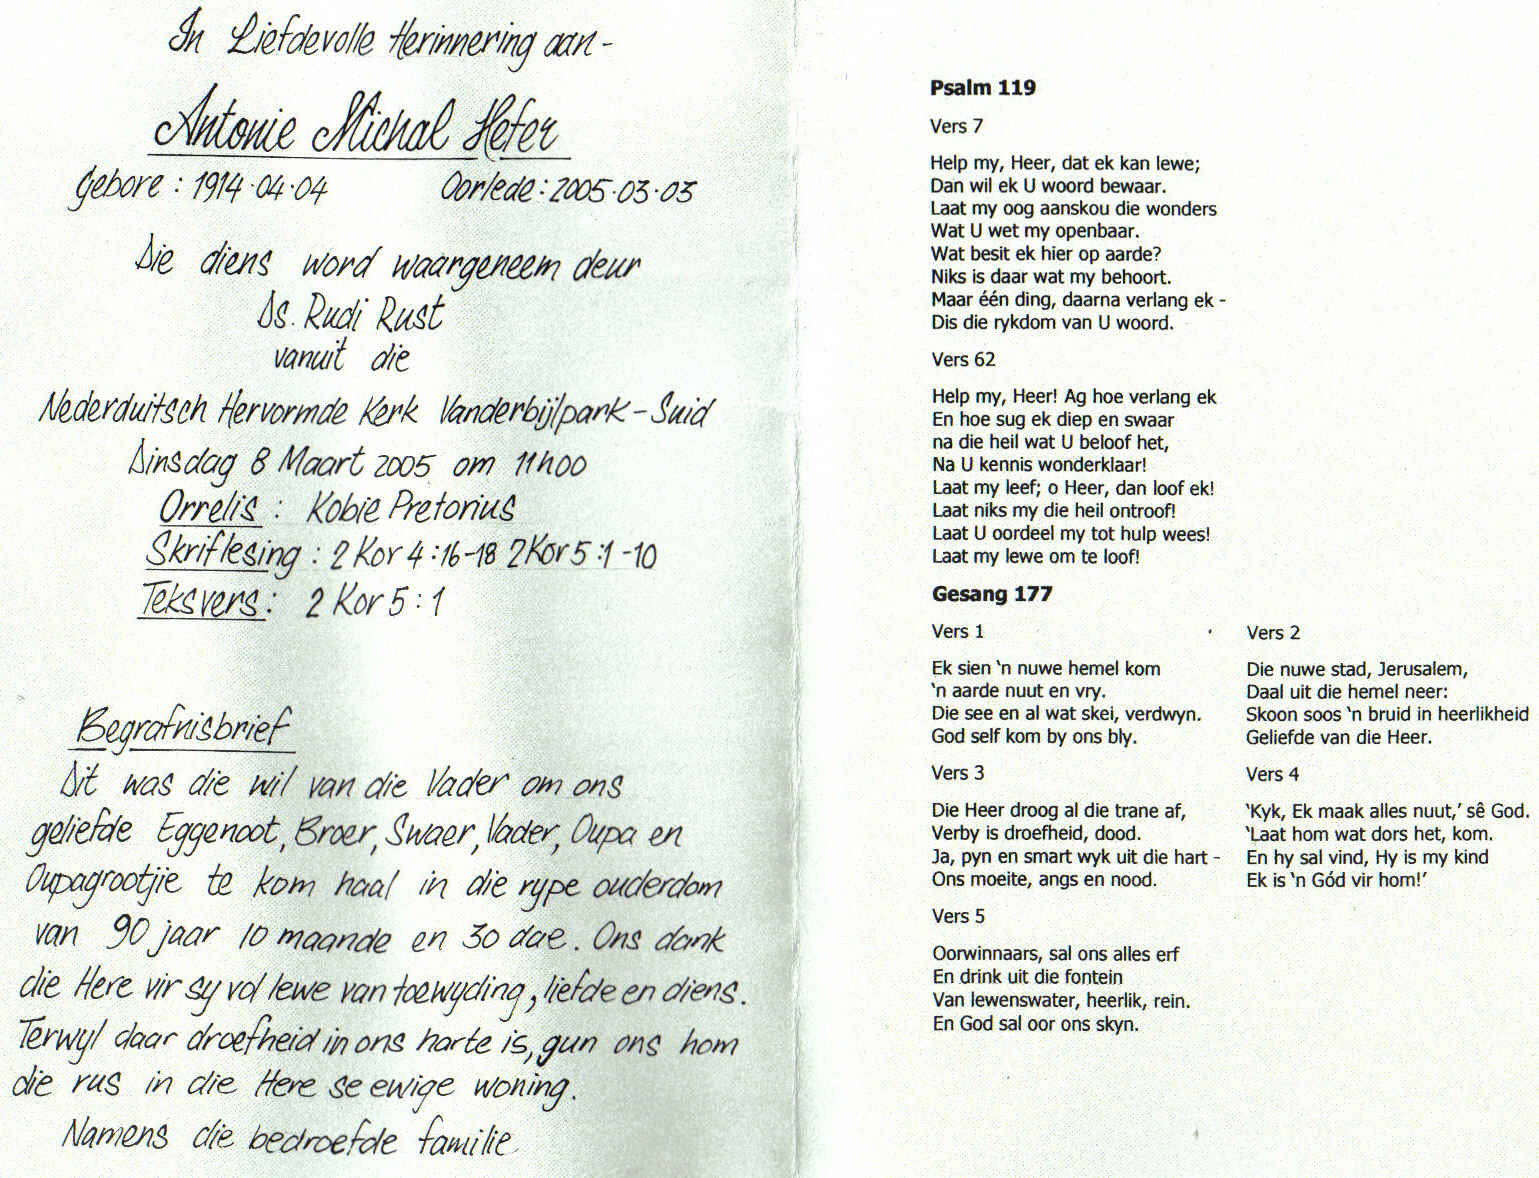 In Liefdevolle Herinnering aan -
Antonie Michal Hefer
Gebore : 1914·04·04 Oorlede : 2005·03·03
Die diens word waargeneem deur
Ds. Rudi Rust
vanuit die
Nederduitsch Hervormde Kerk Vanderbijlpark-Suid
Dinsdag 8 Maart 2005 om 11h00
Orrelis : Kobie Pretorius
Skriflesing : 2 Kor 4 : 16-18 2 Kor 5 : 1-10
Teksvers : 2 Kor 5 : 1
Begrafnisbrief
Dit was die wil van die Vader om ons
geliefde Eggenoot, Broer, Swaer, Vader, Oupa en
Oupagrootjie te kom haal in die rype ouderdom
van 90 jaar 10 maande en 30 dae. Ons dank
die Here vir sy vol lewe van toewyding, liefde en diens.
Terwyl daar droefheid in ons harte is, gun ons hom
die rus in die Here se ewige woning.
Namens die bedroefde familie
Psalm 119
Vers 7
Help my, Heer, dat ek kan lewe;
Dan wil ek U woord bewaar.
Laat my oog aanskou die wonders
Wat U wet my openbaar.
Wat besit ek hier op aarde?
Niks is daar wat my behoort.
Maar één ding, daarna verlang ek -
Dis die rykdom van U woord.
Vers 62
Help my, Heer! Ag hoe verlang ek
En hoe sug ek diep en swaar
na die heil wat U beloof het,
Na U kennis wonderklaar!
Laat my leef; o Heer, dan loof ek!
Laat niks my die heil ontroof!
Laat U oordeel my tot hulp wees!
Laat my lewe om te loof!
Gesang 177
Vers 1
Ek sien 'n nuwe hemel kom
'n aarde nuut en vry.
Die see en al wat skei, verdwyn.
God self kom by ons bly.
Vers 2
Die nuwe stad, Jerusalem,
Daal uit die hemel neer:
Skoon soos 'n bruid in heerlikheid
Geliefde van die Heer.
Vers 3
Die Heer droog al die trane af,
Verby is droefheid, dood.
Ja, pyn en smart wyk uit die hart -
Ons moeite, angs en nood.
Vers 4
'Kyk, Ek maak alles nuut,' sê God.
'Laat hom wat dors het, kom.
En hy sal vind, Hy is my kind
Ek is 'n Gód vir hom!'
Vers 5
Oorwinnaars, sal ons alles erf
En drink uit die fontein
Van lewenswater, heerlik, rein.
En God sal oor ons skyn.